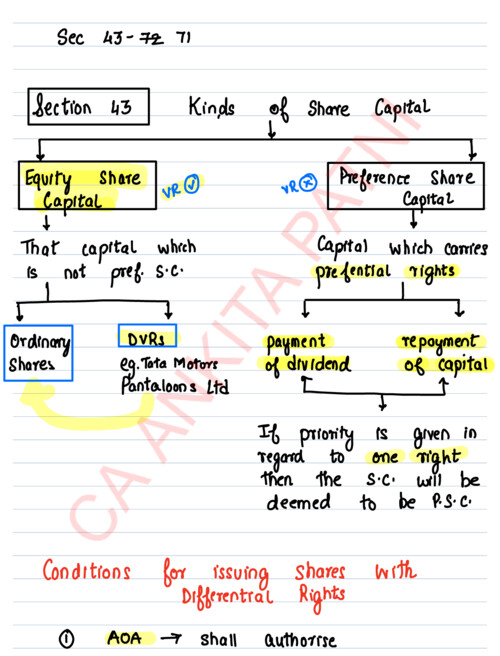 Sec 43-72 71
Section 43 Kinds of Share Capital
Equity Share
Capital
VR ✓
VR ×
Preference Share
Capital
That capital which
is not pref. s.c.
Capital which carries
prefential rights
Ordinary
Shares
DVRs
eg. Tata Motors
Pantaloons Ltd
payment
of dividend
repayment
of capital
If priority is given in
regard to one right
then the s.c. will be
deemed to be P.S.C.
Conditions for issuing shares with
Differential Rights
① AOA → shall authorise
CA ANKITA PATNI